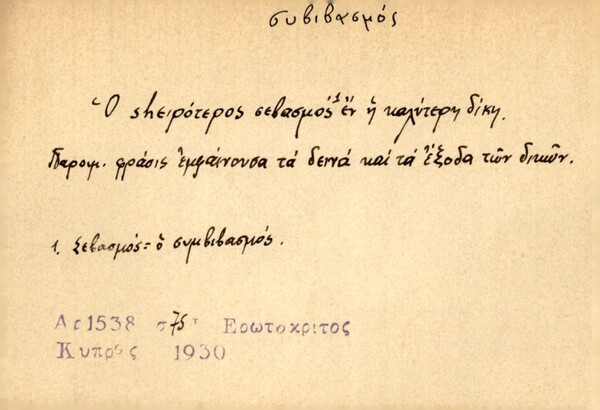 συβιβασμός
Ὁ shειρότερος σεβασμός¹ ἔν ἡ καλύτερη δίκη.
Παροιμ. φράσις ἐμφαίνουσα τά δεινά καί τά ἔξοδα τῶν δικῶν.
1. Σεβασμός = ὁ συμβιβασμός.
Αρ1538 σ75 Ερωτοκριτος
Κυπρος 1930